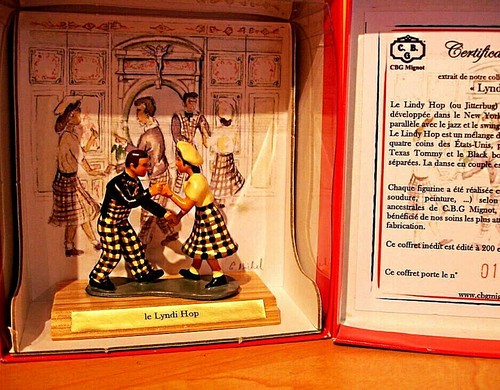 C. B.
G
CBG Mignot
Certifica
extrait de notre coll
« Lynd
Le Lindy Hop (ou Jitterbug)
développée dans le New York
parallèle avec le jazz et le swing
Le Lindy Hop est un mélange d
quatre coins des États-Unis,
Texas Tommy et le Black bo
séparées. La danse en couple es
Chaque figurine a été réalisée e
soudure, peinture, ...) selon
ancestrales de C.B.G Mignot,
bénéficié de nos soins les plus att
fabrication.
Ce coffret inédit est édité à 200 e
Ce coffret porte le n° 01
www.cbgmi
le Lyndi Hop